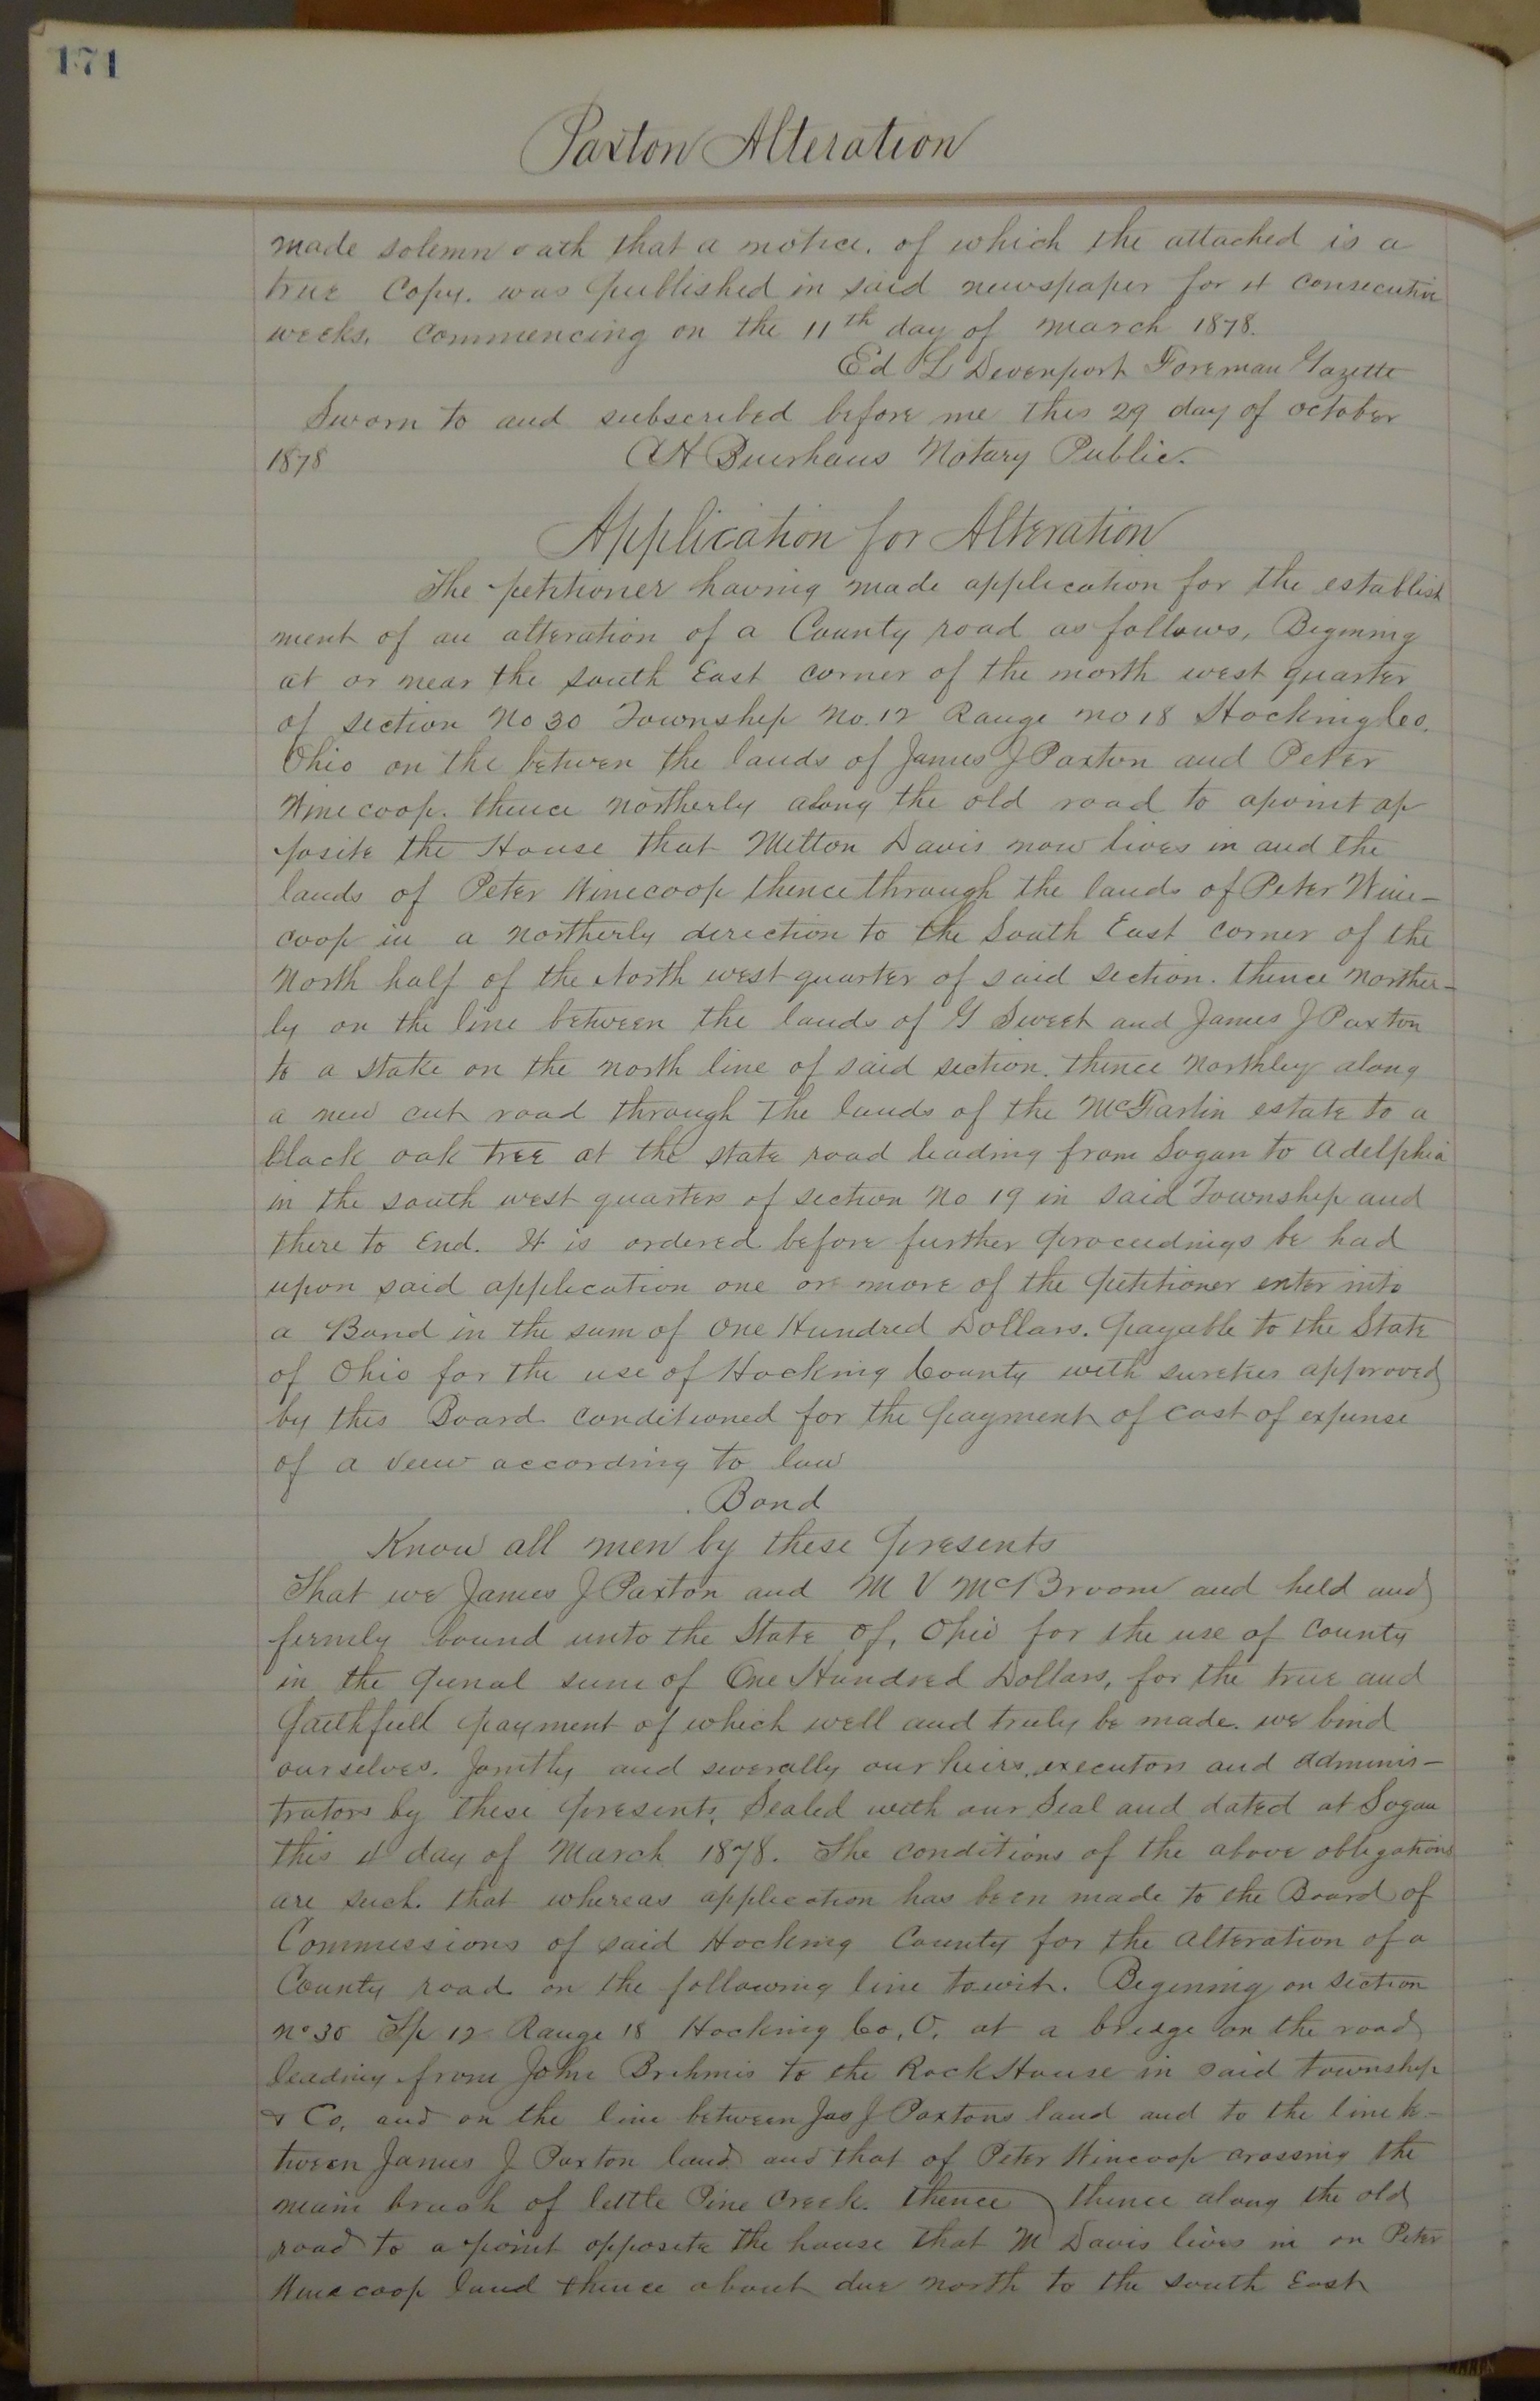 171
Paxton Alteration
made solemn oath that a notice. of which the attached is a
true Copy. was published in said newspaper for 4 consecutive
weeks. Commencing on the 11th day of March 1878.
Ed L Devenport Foreman Gazette
Sworn to and subscribed before me this 29 day of October
1878 A H Buerhaus Notary Public.
Application for Alteration
The petitioner having made application for the establish
ment of an alteration of a County road as follows, Begining
at or near the south East corner of the north west quarter
of section No 30 Township No. 12 Range no 18 Hocking Co.
Ohio on the betwen the lands of James J Paxton and Peter
Winecoop. thence northerly along the old road to apoint op
posite the House that Milton Davis now lives in and the
lands of Peter Winecoop thence through the lands of Peter Wine-
coop in a northerly direction to the South East corner of the
North half of the North west quarter of said section. thence norther-
ly on the line between the lands of G Sweet and James J Paxton
to a stake on the north line of said section. thence northley along
a new cut road through the lands of the McFarlin estate to a
black oak tree at the state road leading from Logan to Adelphia
in the south west quarter of section No 19 in said Township and
there to End. It is ordered before further proceedings be had
upon said application one or more of the petitioner enter into
a Bond in the sum of One Hundred Dollars. payable to the State
of Ohio for the use of Hocking County with sureties approved
by this Board conditioned for the payment of cost of expense
of a view according to law
Bond
Know all men by these presents
That we James J Paxton and M V McBroom and held and
firmly bound unto the State of, Ohio for the use of County
in the penal sum of One Hundred Dollars, for the true and
faithfull payment of which well and truly be made. we bind
ourselves. Jointly and severally our heirs, executors and adminis-
trators by these presents, Sealed with our Seal and dated at Logan
this 4 day of March 1878. The conditions of the above obligations
are such. that whereas application has been made to the Board of
Commissions of said Hocking County for the Alteration of a
County road on the following line towit. Begining on section
no 30 Tp 12 Range 18 Hocking Co, O, at a bridge on the road
leading from John Brehmis to the Rock House in said township
& Co, and on the line between Jas J Paxtons land and to the line be-
tween James J Paxton land and that of Peter Wincoop crossing the
main brach of little Pine Creek. thence thence along the old
road to a point opposite the house that M Davis lives in on Peter
Winecoop land thence about due north to the south East